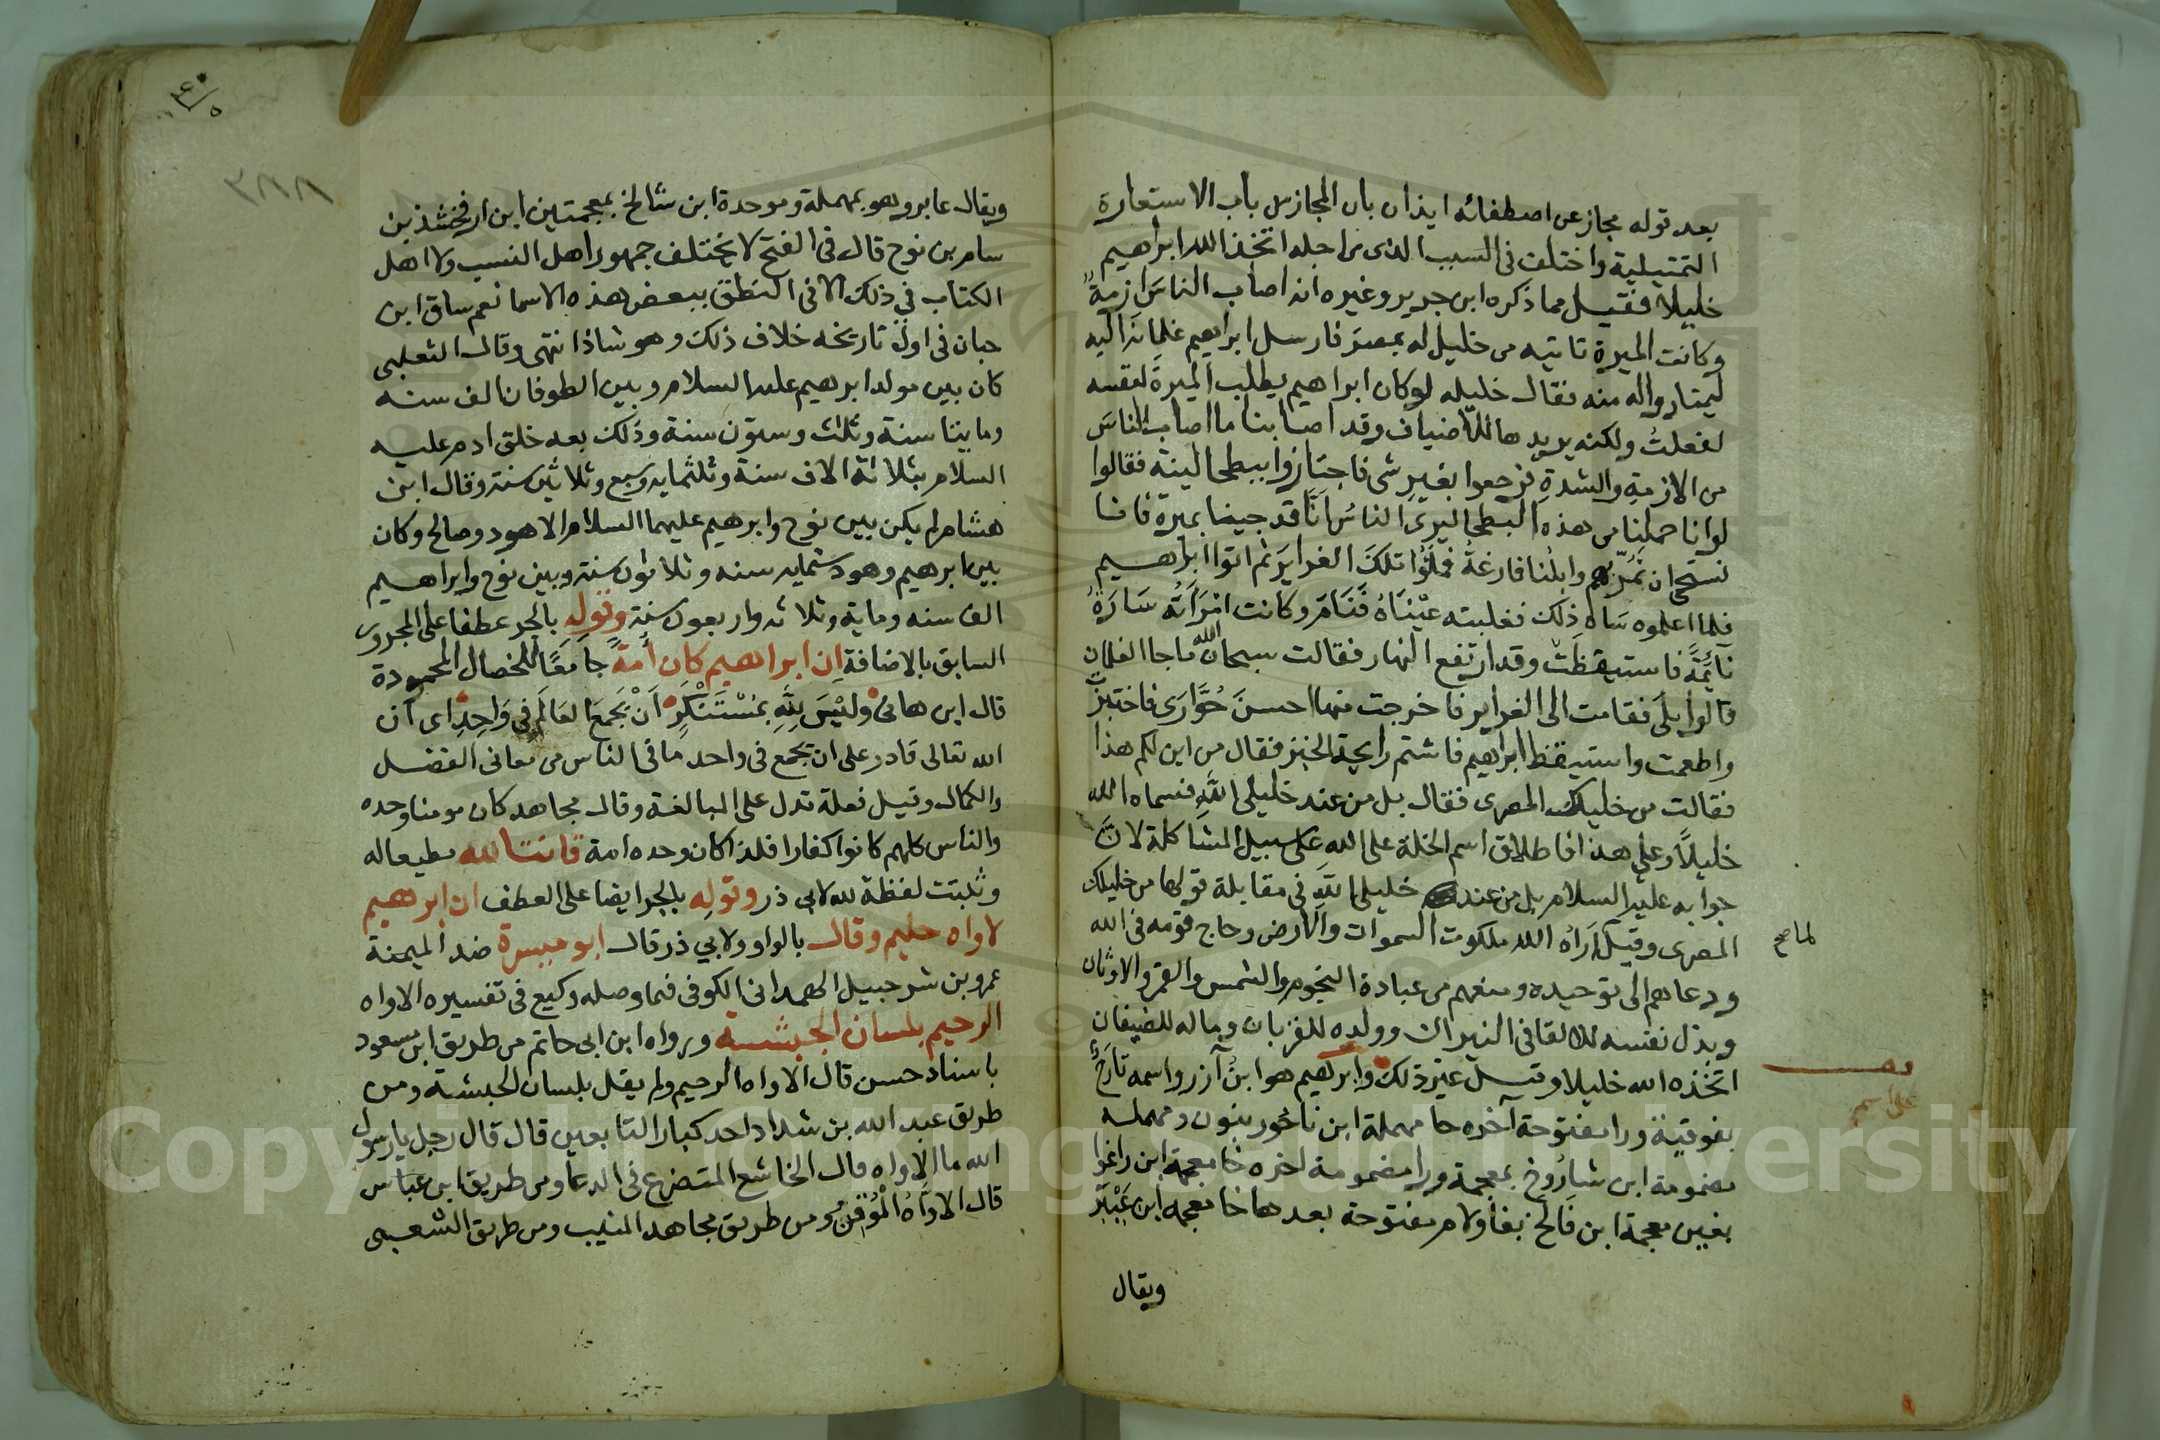 بعد قوله مجاز عن اصطفائه ايذان بان المجاز من باب الاستعارة
التمثيلية واختلف في السبب الذى من اجله اتخذ الله ابراهيم
خليلا فقيل مما ذكره ابن جرير وغيره انه اصاب الناسَ ازمةٌ
وكانت الميرة تاتيه من خليل له بمصر فارسل ابراهيم غلمانه اليه
ليمتاروا له منه فقال خليله لو كان ابراهيم يطلب الميرةَ لنفسه
لفعلتُ ولكنه يريدها للاضياف وقد اصابنا ما اصاب الناسَ
من الازمةِ والشدةِ فرجعوا بغيرِ شى فاجتازوا ببطحا لينة فقالوا
لو انا حملنا من هذه البطحا ليرى الناسُ انَّا قد جينا بميرة فانا
نستحى ان نمُرّ بهم وابلُنا فارغةٌ فملَؤُا تلكَ الغرايرَ ثم اتوا ابراهيم
فلما اعلموه سَاه ذلك فغلبته عيْنَاهُ فَنَامَ وكانت امْرَأَتُه سَارَةُ
نَايمَةً فاستيقظَتْ وقد ارتفع النهار فقالت سبحان الله ما جا الغلمان
قالوا بلَى فقامت الى الغراير فاخرجت منها احسنَ حُوَّارَى فاختبزَتْ
واطعمت واستيقظ ابراهيم فاشتم رايحة الخبز فقال من اين لكم هذا
فقالت من خليلك المصرى فقال بل من عند خليلى اللَّهِ فسماه الله
خليلاً وعلى هذا فاطلاق اسم الخلة على الله على سبيل المشاكلة لانَّ
جوابه عليه السلام بل من عند خليلى اللَّهِ فى مقابلة قولها من خليلك
المصرى وقيل اَرَاهُ الله ملكوت السموات والارض وحاج قومه فى الله
لما صح
ودعاهم الى توحيده ومنعهم من عبادة النجوم والشمس والقمر والاوثان
وبذل نفسه للالقا فى النيران وولده للقربان وماله للضيفان
اتخذه الله خليلا وقيل غير ذلك وابرهيم هو ابنُ آزر واسمه تَارَحُ
بفوقية ورا مفتوحة آخره حا مهملة ابن نَاحُور بنون ومهملة
مضمومة ابن شارُوخ بمعجمة ورا مضمومة اخره خا معجمة ابن راغوا
بغين معجمة ابن فَالَخ بفا ولام مفتوحة بعدها خا معجمة ابن عَيْبَر
ويقال
٣٨٨
ويقال عابر وهو بمهملة وموحدة ابن شالخ بمعجمتين ابن ارفخشذ بن
سام بن نوح قال فى الفتح لا يختلف جمهور اهل النسب ولا اهل
الكتاب في ذلك الا فى النطق ببعض هذه الاسما نعم ساق ابن
حبان فى اول تاريخه خلاف ذلك وهو شاذ انتهى وقال الثعلبى
كان بين مولد ابرهيم عليه السلام وبين الطوفان الف سنه
وما يتا سنة وثلث وستون سنة وذلك بعد خلق ادم عليه
السلام بثلاثة الاف سنة وثلثمايه وسبع وثلاثين سنة وقال ابن
هشام لم يكن بين نوح وابرهيم عليهما السلام الا هود وصالح وكان
بين ابرهيم وهود ستمايه سنه وثلاثون سنة وبين نوح وابراهيم
الف سنه وماية وثلاثه واربعون سنة وقوله بالجر عطفا على المجرور
السابق بالاضافة ان ابراهيم كان أمةً جامعًا للخصال المحمودة
قال ابن هانئ وليْسَ لِلَّهِ بمُسْتَنْكَرٍ اَنْ يَجْمَعَ العَالَمَ فى وَاحِدِ اى ان
الله تعالى قادر على ان يجمع فى واحد ما فى الناس من معانى الفضل
والكمال وقيل فعلة تدل على المبالغة وقال مجاهد كان مومنا وحده
والناس كلهم كانوا كفارا فلذا كان وحده امة قانتا لله مطيعا له
وثبتت لفظة لله لابى ذر وقولِه بالجر ايضا على العطف ان ابرهيم
لاواه حليم وقال بالواو ولابي ذر قال ابو ميسرة ضد الميمنة
عمرو بن شرحبيل الهمدانى الكوفى فيما وصله وكيع فى تفسيره الاواه
الرحيم بلسان الحبشة ورواه ابن ابى حاتم من طريق ابن مسعود
باسناد حسن قال الاواه الرحيم ولم يقل بلسان الحبشة ومن
طريق عبد الله بن شداد احد كبار التابعين قال قال رجل يا رسول
الله ما الاواه قال الخاشع المتضرع فى الدعا ومن طريق ابن عباس
قال الاوَّاهُ الْمُوْقِنُ ومن طريق مجاهد المنيب ومن طريق الشعبى
Copyright © King Saud University